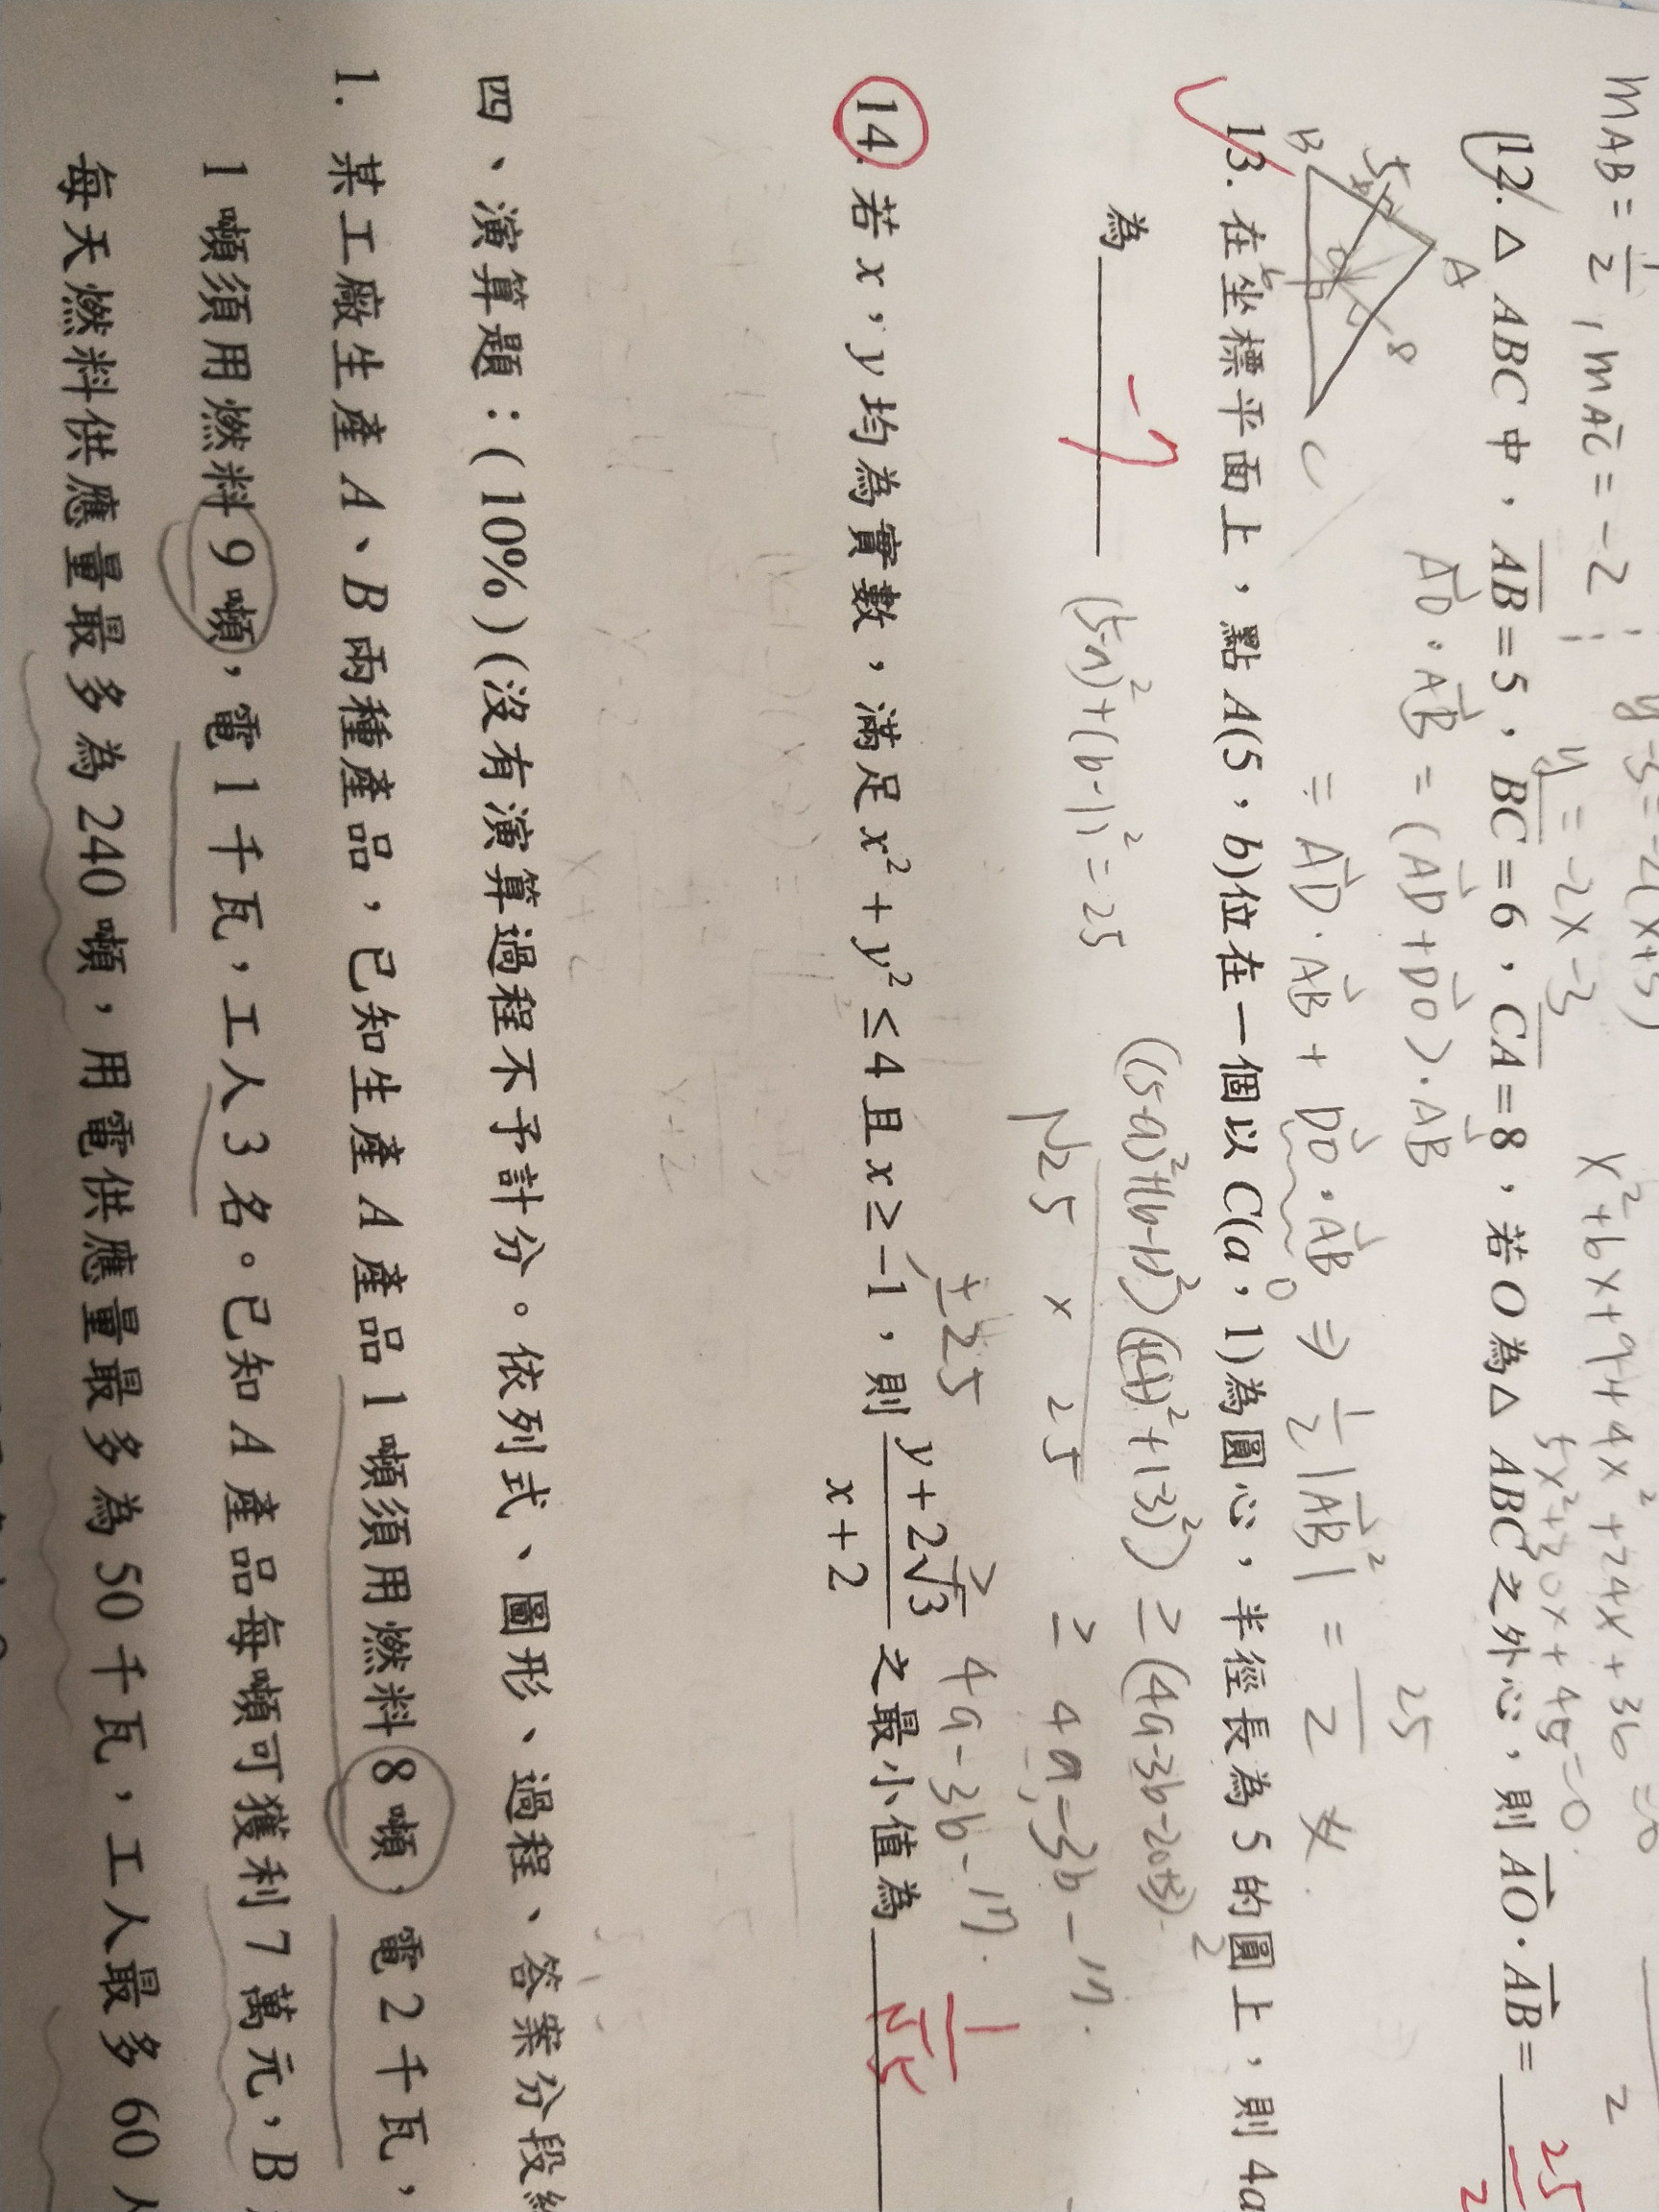 mAB = 1/2 , mAC = -2
y-3 = -2(x+3)
y = -2x-3
x²+6x+9+4x²+24x+36
5x²+30x+45=0
12. △ABC中，AB=5，BC=6，CA=8，若O為△ABC之外心，則AO·AB= 25/2
AO·AB = (AD+DO)·AB
= AD·AB + DO·AB ⇒ 1/2|AB|² = 25/2
0
A
5
8
B
C
O
13. 在坐標平面上，點A(5，b)位在一個以C(a，1)為圓心，半徑長為5的圓上，則4a
為 -7
(5-a)²+(b-1)²=25
((5-a)²+(b-1)²)(4²+(-3)²) ≥ (4a-3b-20+3)²
√25 × 25 ≥ 4a-3b-17
±25 ≥ 4a-3b-17
14. 若x，y均為實數，滿足x²+y²≤4且x≥-1，則 (y+2√3)/(x+2) 之最小值為 1/√3
四、演算題：(10%)(沒有演算過程不予計分。依列式、圖形、過程、答案分段
1. 某工廠生產A、B兩種產品，已知生產A產品1噸須用燃料8噸，電2千瓦，
1噸須用燃料9噸，電1千瓦，工人3名。已知A產品每噸可獲利7萬元，B
每天燃料供應量最多為240噸，用電供應量最多為50千瓦，工人最多60人